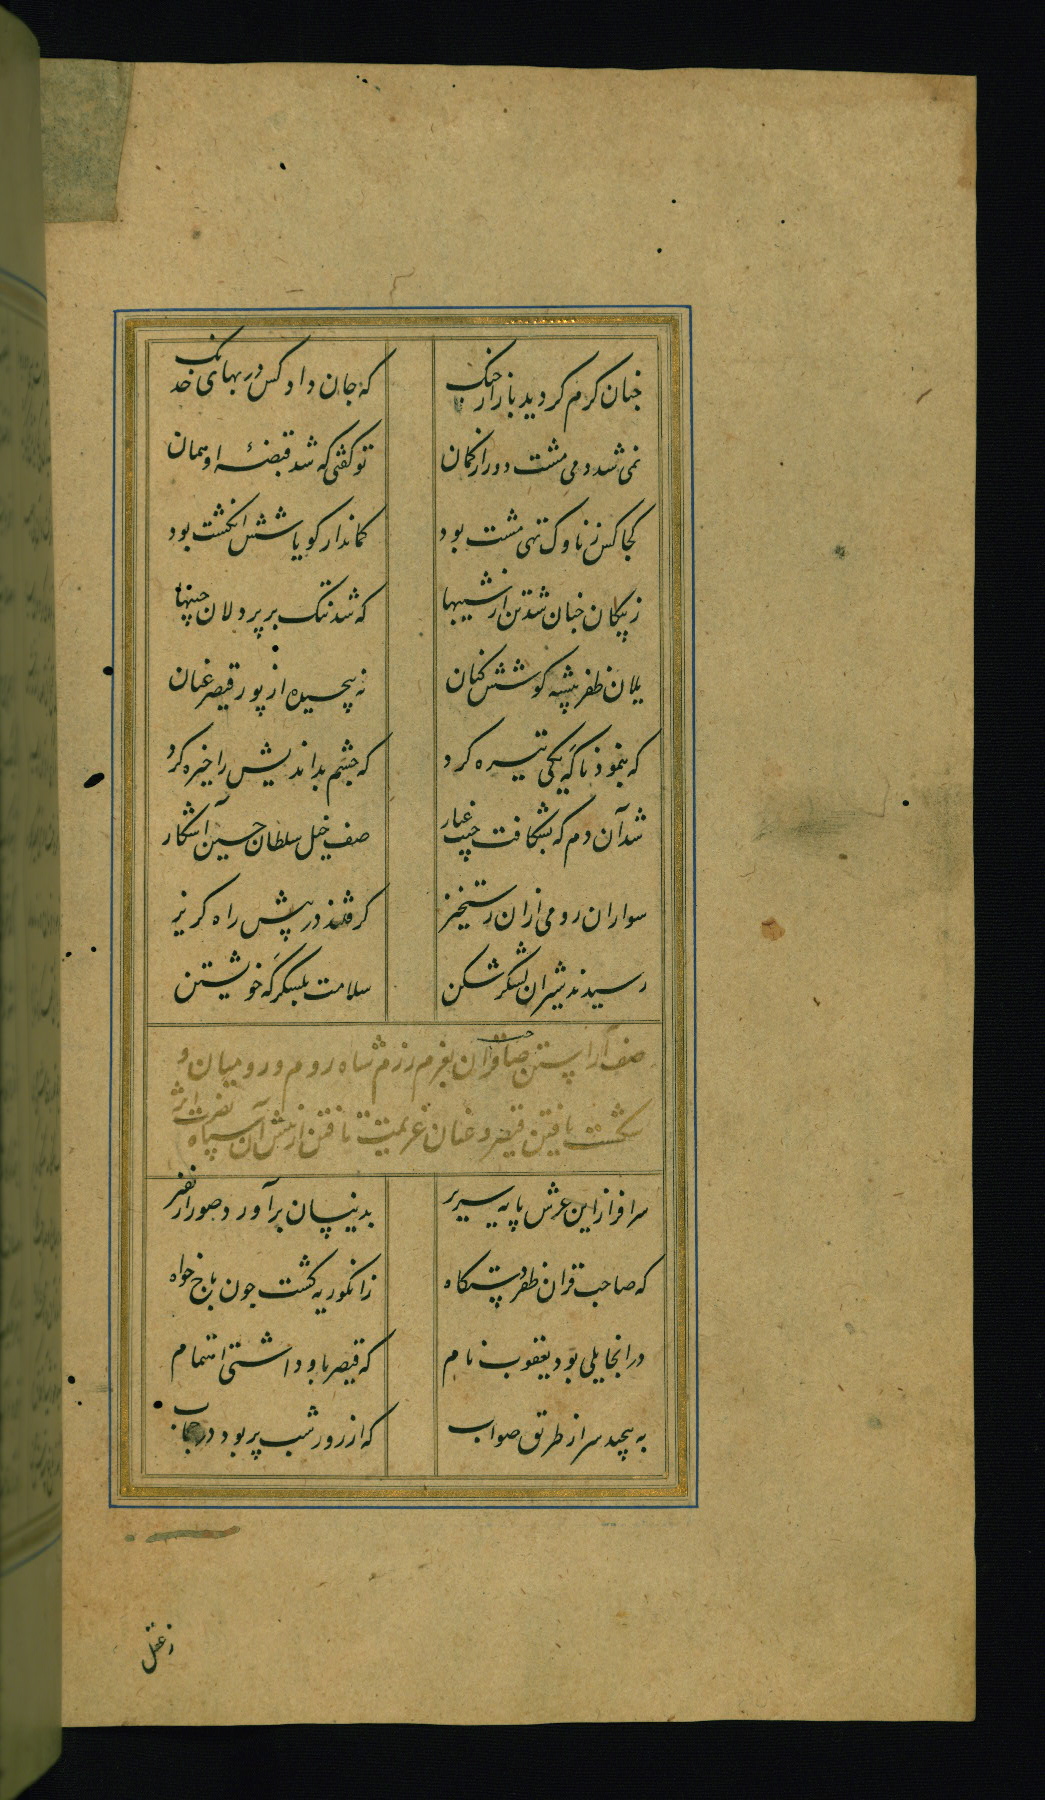 چنان گرم گردید بازار جنگ که جان داد کس در بهای خدنک
نمی شد دمی مشت دور از کمان تو گفتی که شد قبضهٔ او همان
کجا کس ز ناوک تهی مشت بود کماندار گویا شش انگشت بود
ز پیکان چنان شد تن از شیبها که شد تنک بر پردلان
یلان ظفر پیشه کوشش کنان نه پیچیده از پور قیصر عنان
که بنمود ناگه یکی تیره کرد که چشم بداندیش را خیره کرد
شد آن دم که بشکافت جیب غبار صف خیل سلطان حسین آشکار
سواران رومی ازان رستخیز گرفتند در پیش راه گریز
رسیدند شیران لشکر شکن سلامت بلشکرگه خویشتن
صف آراستن صاحبقران بعزم رزم شاه روم و رومیان و
شکست یافتن قیصر و عنان عزیمت تافتن از پیش آن سپاه نصرت اثر
سرافراز این عرش پایه سریر بدینسان برآورد صور از نفیر
که صاحب قران ظفر دستگاه ز انکوریه گشت چون باج خواه
در انجا یلی بود یعقوب نام که قیصر باو داشتی اهتمام
به پیچید سر از طریق صواب که از زور شب پر بود در حجاب
ز عقل